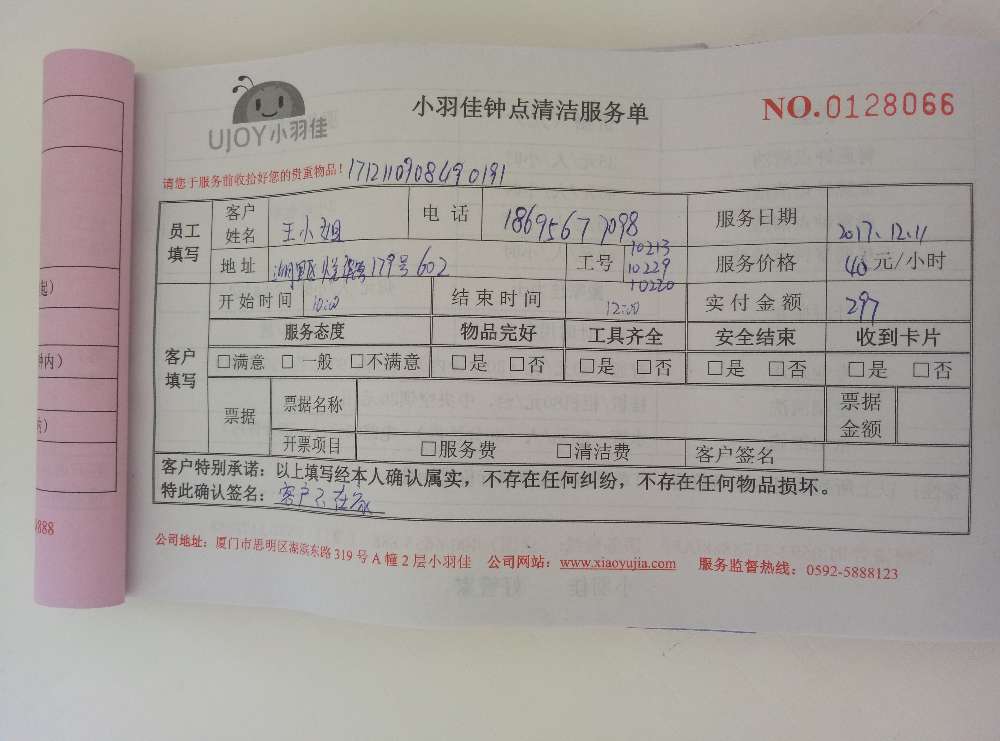 UJOY小羽佳
小羽佳钟点清洁服务单
NO.0128066
请您于服务前收拾好您的贵重物品！ 1712110908490191
员工填写 客户姓名 王小姐 电话 18695677098 服务日期 2017.12.11
地址 湖里区 179号602 工号 10213 10229 10220 服务价格 40元/小时
客户填写 开始时间 10:00 结束时间 12:00 实付金额 297
服务态度 物品完好 工具齐全 安全结束 收到卡片
□满意 □一般 □不满意 □是 □否 □是 □否 □是 □否 □是 □否
票据 票据名称 票据金额
开票项目 □服务费 □清洁费 客户签名
客户特别承诺：以上填写经本人确认属实，不存在任何纠纷，不存在任何物品损坏。
特此确认签名：客户不在家
公司地址：厦门市思明区湖滨东路319号A幢2层小羽佳 公司网站：www.xiaoyujia.com 服务监督热线：0592-5888123
起）
钟内）
888